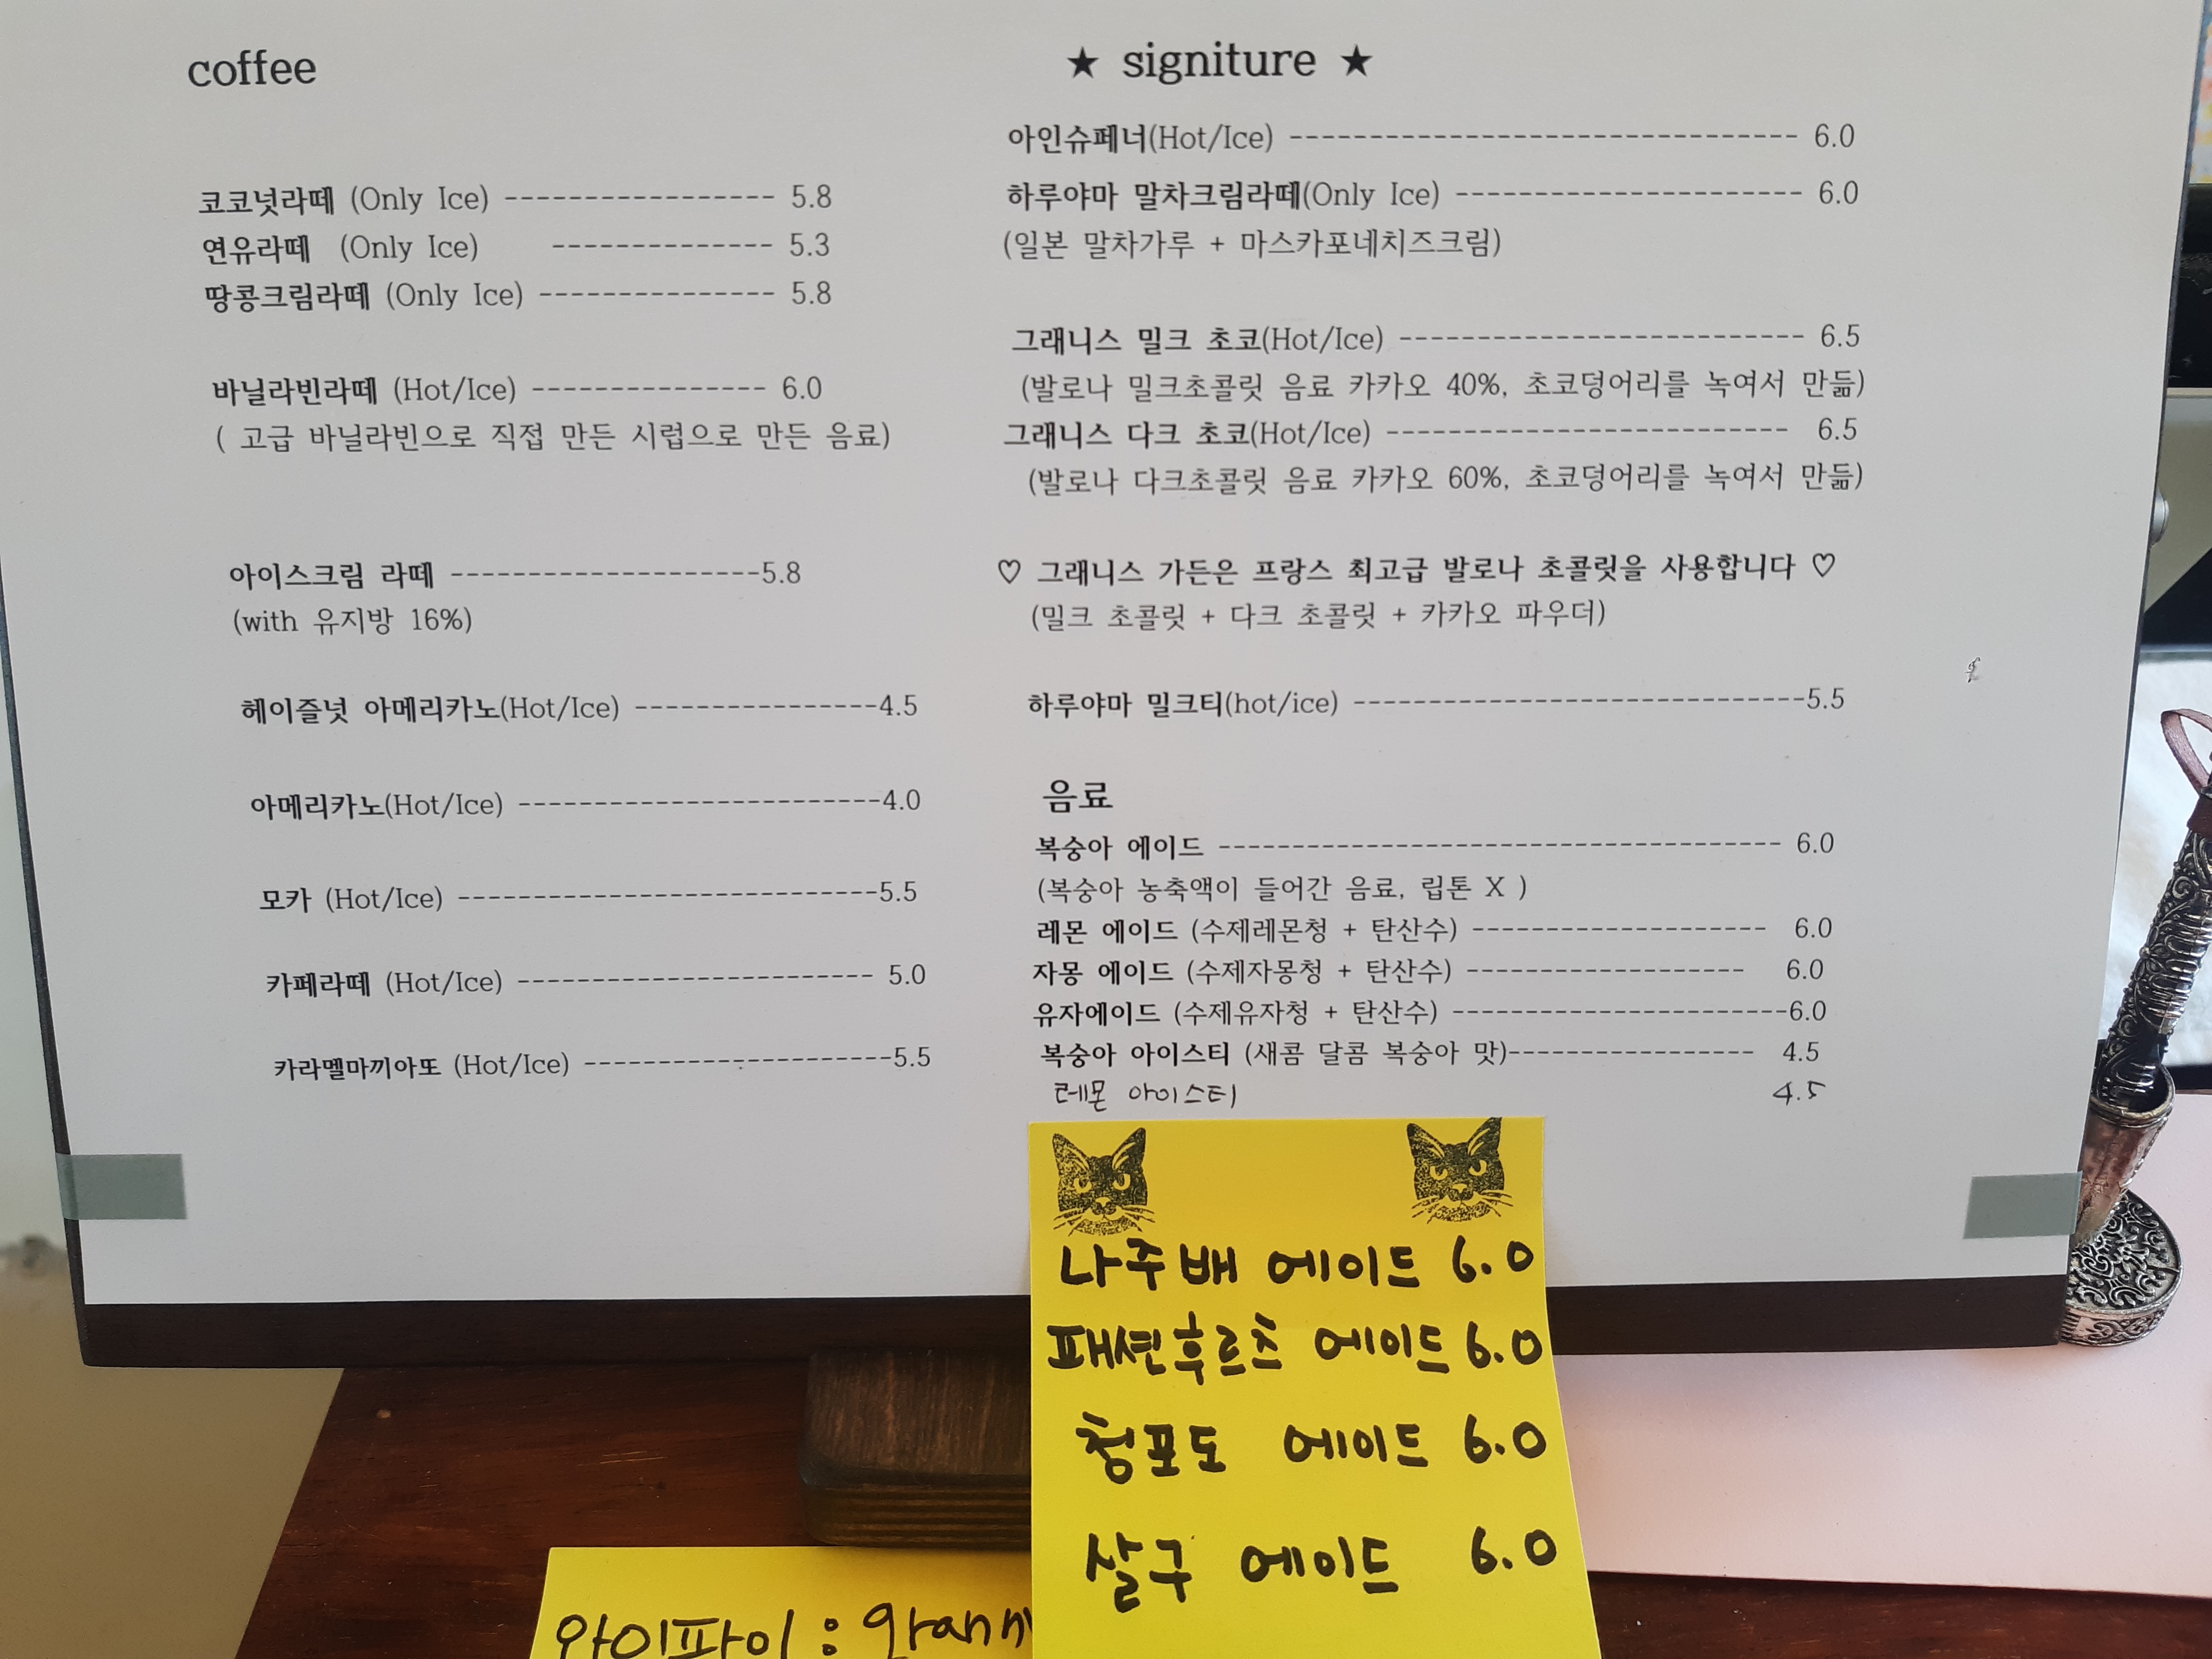 coffee
코코넛라떼 (Only Ice) ----------------- 5.8
연유라떼 (Only Ice) -------------- 5.3
땅콩크림라떼 (Only Ice) --------------- 5.8
바닐라빈라떼 (Hot/Ice) --------------- 6.0
( 고급 바닐라빈으로 직접 만든 시럽으로 만든 음료)
아이스크림 라떼 --------------------5.8
(with 유지방 16%)
헤이즐넛 아메리카노(Hot/Ice) ----------------4.5
아메리카노(Hot/Ice) ------------------------4.0
모카 (Hot/Ice) ----------------------------5.5
카페라떼 (Hot/Ice) ------------------------ 5.0
카라멜마끼아또 (Hot/Ice) --------------------5.5
★ signiture ★
아인슈페너(Hot/Ice) -------------------------------- 6.0
하루야마 말차크림라떼(Only Ice) ---------------------- 6.0
(일본 말차가루 + 마스카포네치즈크림)
그래니스 밀크 초코(Hot/Ice) -------------------------- 6.5
(발로나 밀크초콜릿 음료 카카오 40%, 초코덩어리를 녹여서 만듦)
그래니스 다크 초코(Hot/Ice) -------------------------- 6.5
(발로나 다크초콜릿 음료 카카오 60%, 초코덩어리를 녹여서 만듦)
♡ 그래니스 가든은 프랑스 최고급 발로나 초콜릿을 사용합니다 ♡
(밀크 초콜릿 + 다크 초콜릿 + 카카오 파우더)
하루야마 밀크티(hot/ice) ------------------------------5.5
음료
복숭아 에이드 -------------------------------------- 6.0
(복숭아 농축액이 들어간 음료, 립톤 X )
레몬 에이드 (수제레몬청 + 탄산수) -------------------- 6.0
자몽 에이드 (수제자몽청 + 탄산수) ------------------- 6.0
유자에이드 (수제유자청 + 탄산수) -----------------------6.0
복숭아 아이스티 (새콤 달콤 복숭아 맛)----------------- 4.5
레몬 아이스티 4.5
나주배 에이드 6.0
패션후르츠 에이드 6.0
청포도 에이드 6.0
살구 에이드 6.0
와이파이 :